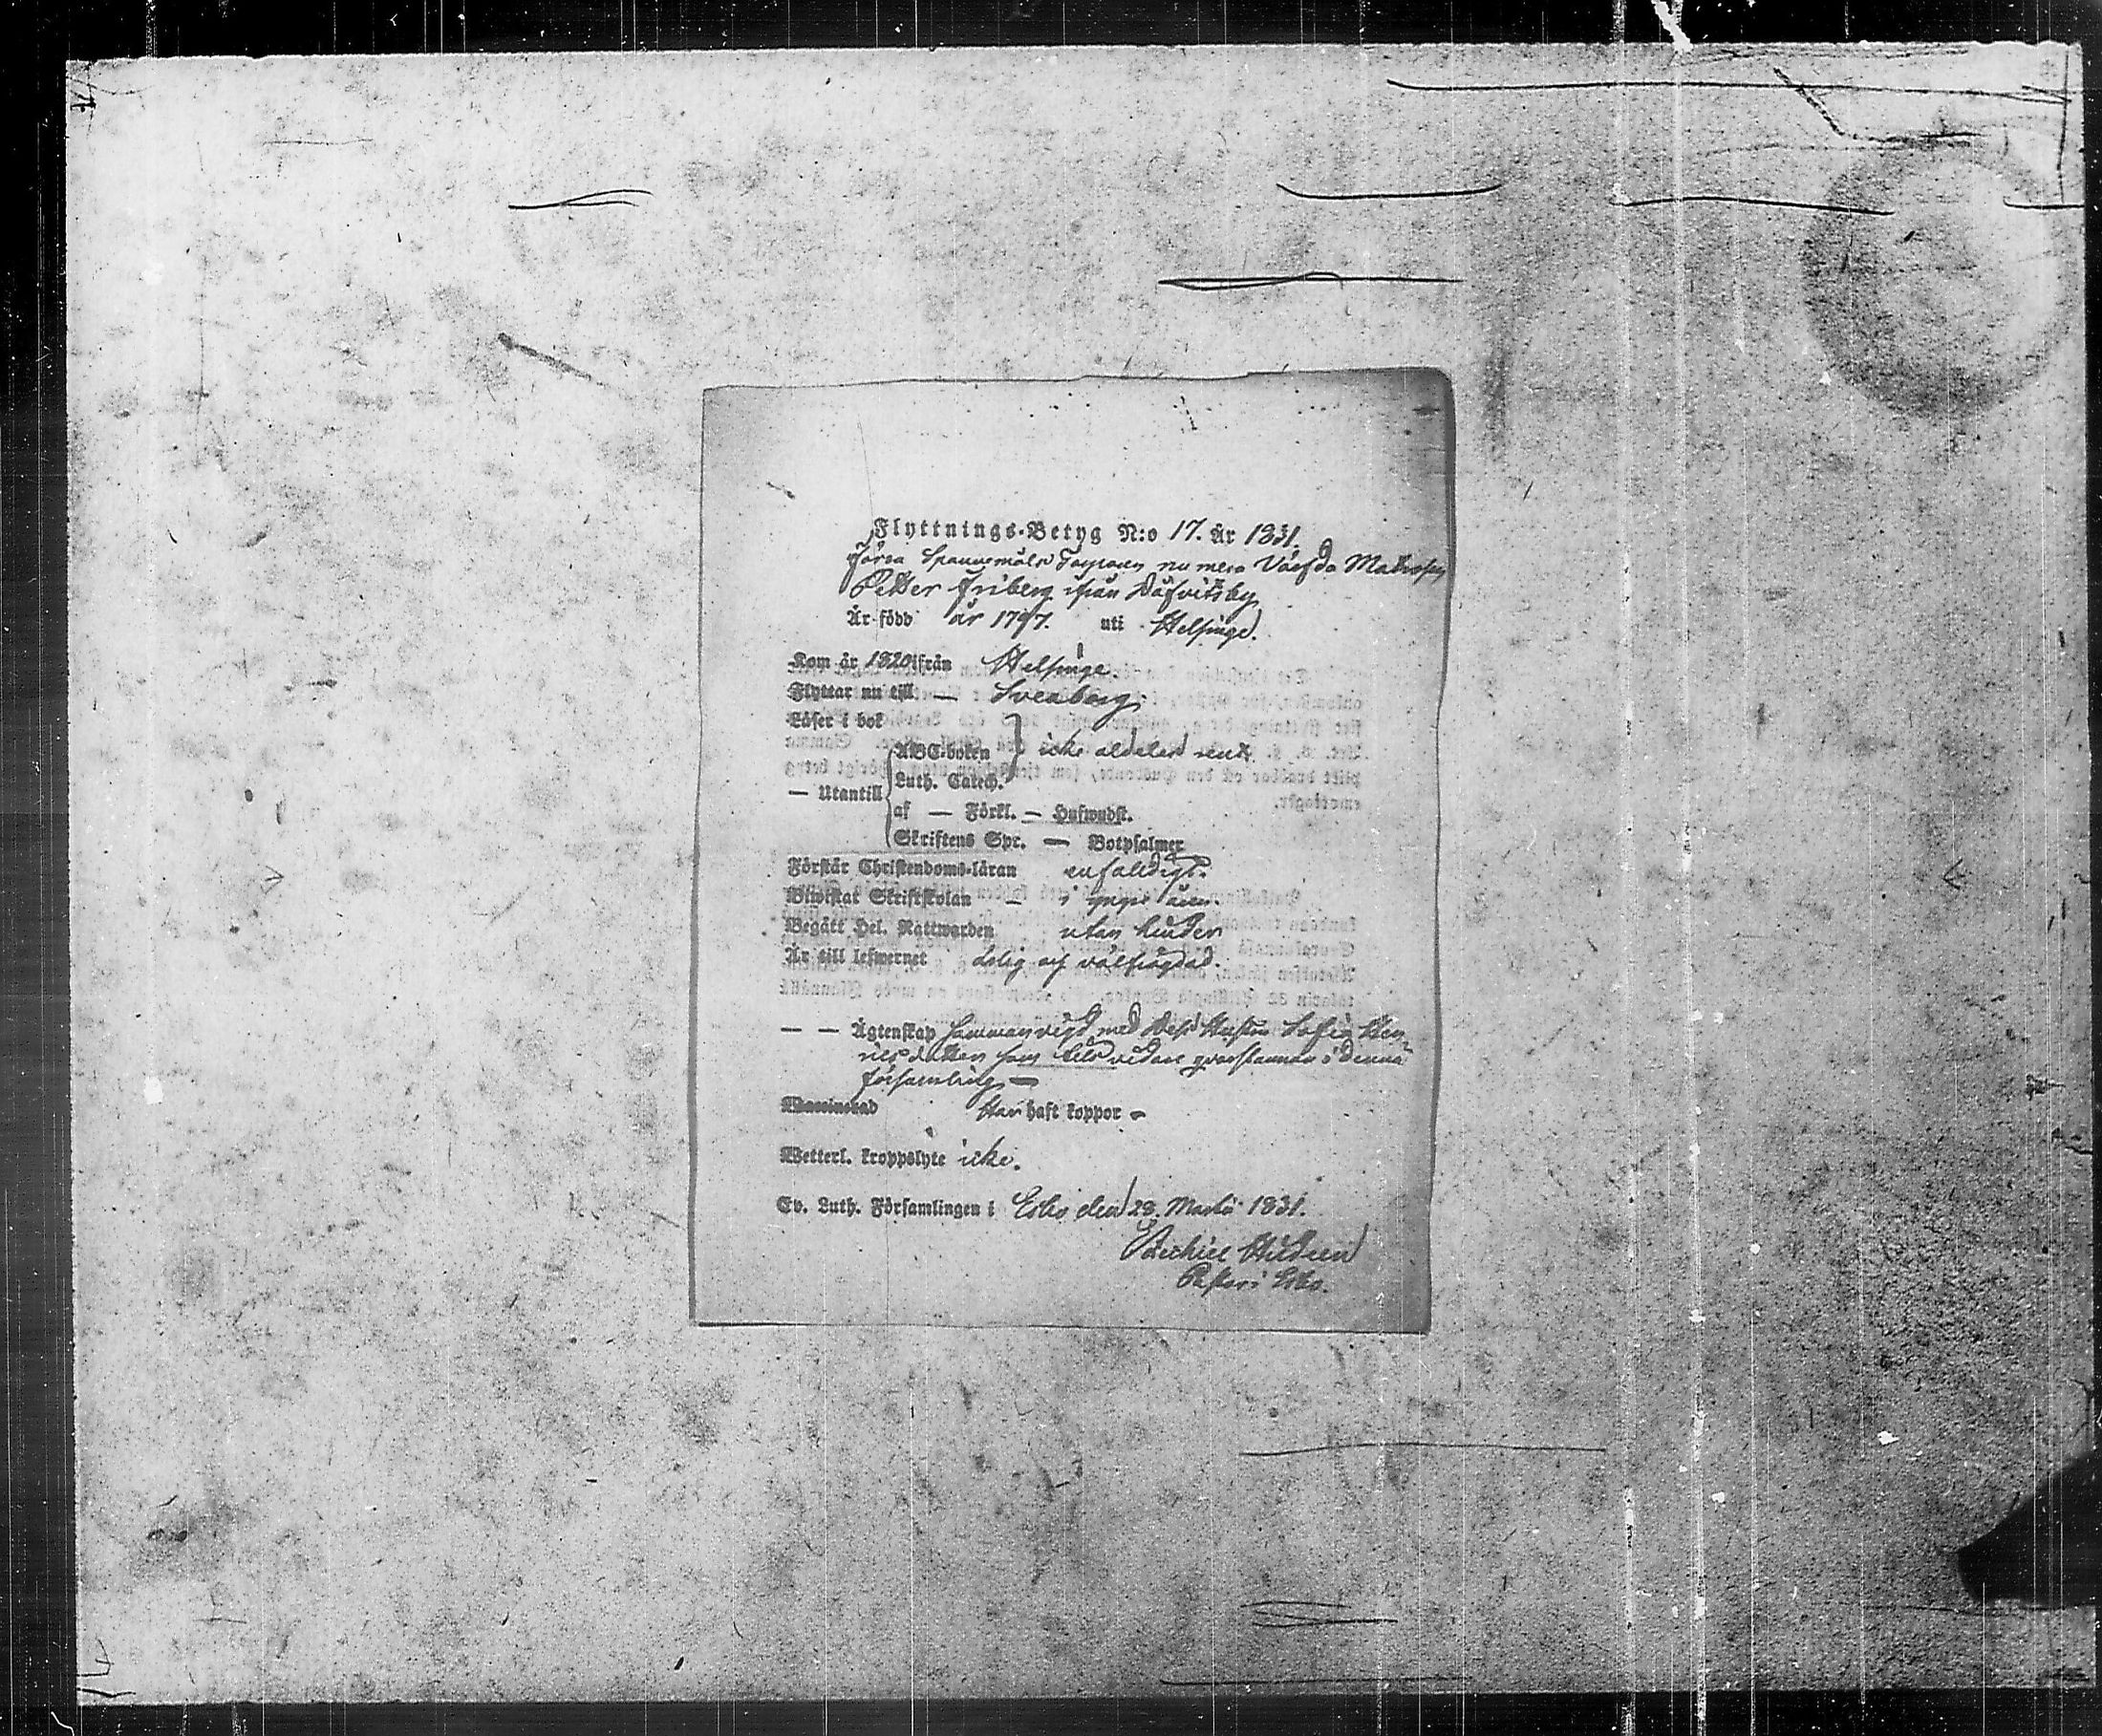 Flyttnings-Betyg N:o 17. År 1831.
Förra Spannemåls Torparen nu mera Värfda Matrosen
Petter Friberg ifrån Dåfvitsby
Är född år 1797. uti Helsinge.
Kom år 1820 ifrån Helsinge
Flyttar nu till — Sveaborg.
Läser i bok
ABC-boken } icke aldeles rent.
Luth. Catech.
— Utantill
af — Förkl. — Huswudst.
Skriftens Spr. — Botpsalmer
Förstår Christendoms-läran enfaldigt.
Biwistat Skriftskolan — i yngre åren.
Begått Hel. Nattwarden utan hinder
Är till lefwernet ärlig och välfrägdad.
— — Ägtenskap sammanvigd med Dess Hustru Sofia Hen-
ricsdotter som tills vidare qvarstannar i denna
församling —
Waccinerad Har haft koppor —
Wetterl. kroppslyte icke.
Ev. Luth. Församlingen i Esbo den 28. Martii 1831.
Ezechiel Hildeen
Pastor i Esbo.